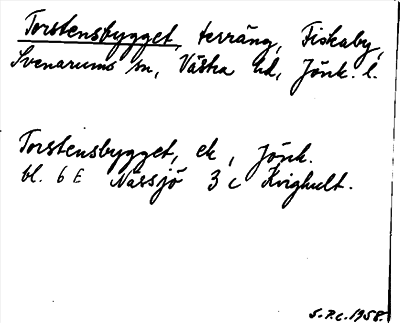 Torstensbygget, terräng, Fiskaby,
Svenarums sn, Västra hd, Jönk. l.
Torstensbygget, ek, Jönk.
bl. 6 E Nässjö 3 c Kvighult.
S.P.c. 1958.